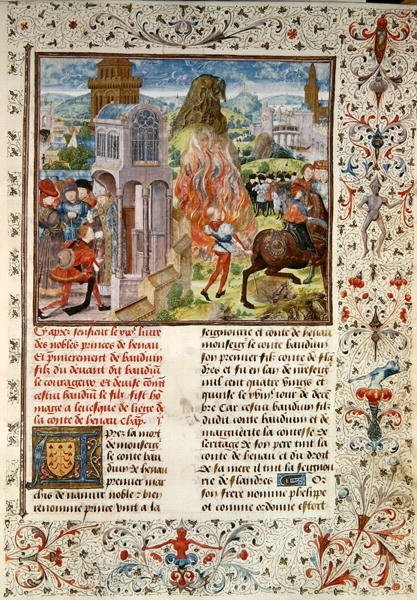 Cy apres sensieut le viije. liure
des nobles princes de henau
Et premierement de bauduin
filz du deuant dit bauduin
le courageux Et deuise comt
cestui bauduin le filz fist ho
mage a leuesque de liege de
la conte de henau Chap.
Apres la mort
de monseigneur
le conte bau
duin de henau
premier mar
chis de namur noble & bien
renomme prince vint a la
seignourie et conte de henau
monseigneur le conte bauduin
son premier filz conte de fla
dres et fu en lan de nre seigneur
mil cent quatre vingz et
quinse le viije. iour de de
cbre Car cestui bauduin filz
dudit conte bauduin et de
marguerite la contesse de
heritage de son pere tint la
conte de henau et du droit
de sa mere il tint la seignou
rie de flandres Or
son frere nomme phelippe
et comme ordonne estoit